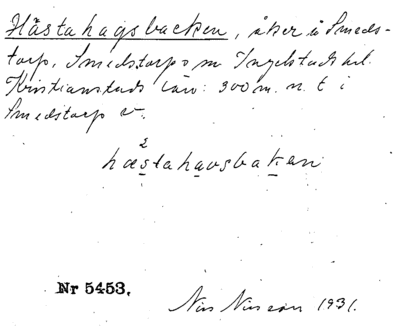 Hästahagsbacken, åker å Smeds-
torp, Smedstorps sn Ingelstads hd.
Kristianstads län: 300 m. n. t i
Smedstorp v.
2
hæstahavsbaken
Nr 5453.
Nils Nilsson 1931.